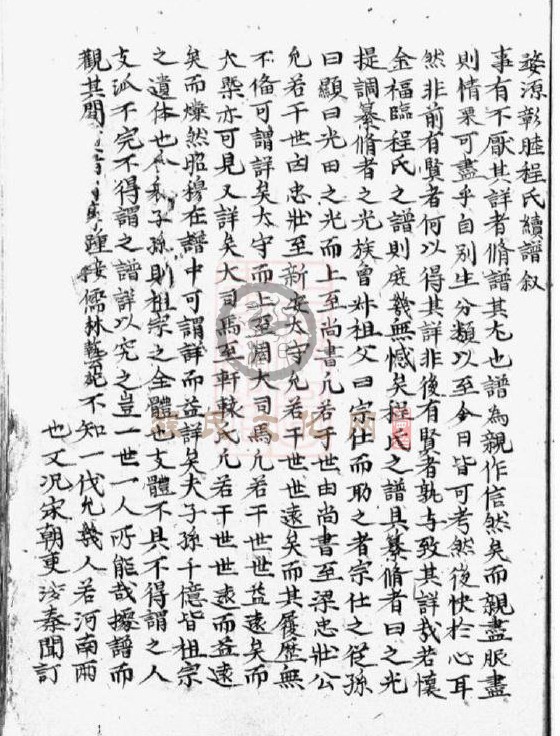 婺源彰睦程氏續譜叙
事有不厭其詳者脩譜其尤也譜為親作信然矣而親盡服盡
則情栗可盡乎自別生分類以至今日皆可考然後快於心耳
然非前有賢者何以得其詳非後有賢者孰与致其詳哉若懷
金福臨程氏之譜則庶幾無憾矣程氏之譜具纂脩者曰之光
提調纂脩者之光族曾叔祖父曰宗仕而助之者宗仕之從孫
曰顯曰光田之光而上至尚書凢若干世由尚書至梁忠壯公
凢若干世由忠壯至新安太守凢若干世世遠矣而其履歷無
不俻可謂詳矣太守而上至淵大司馬凢若干世世益遠矣而
大槩亦可見又詳矣大司馬至軒轅氏凢若干世世遠而益遠
矣而燦然昭穆在譜中可謂詳而益詳矣夫子孫千億皆祖宗
之遺体也今子孫則祖宗之全體也支體不具不得謂之人
支派不完不得謂之譜詳以究之豈一世一人所能哉援譜而
觀其間 踵接儒林 不知一代凢幾人若河南兩
也又况宋朝東 秦聞訂